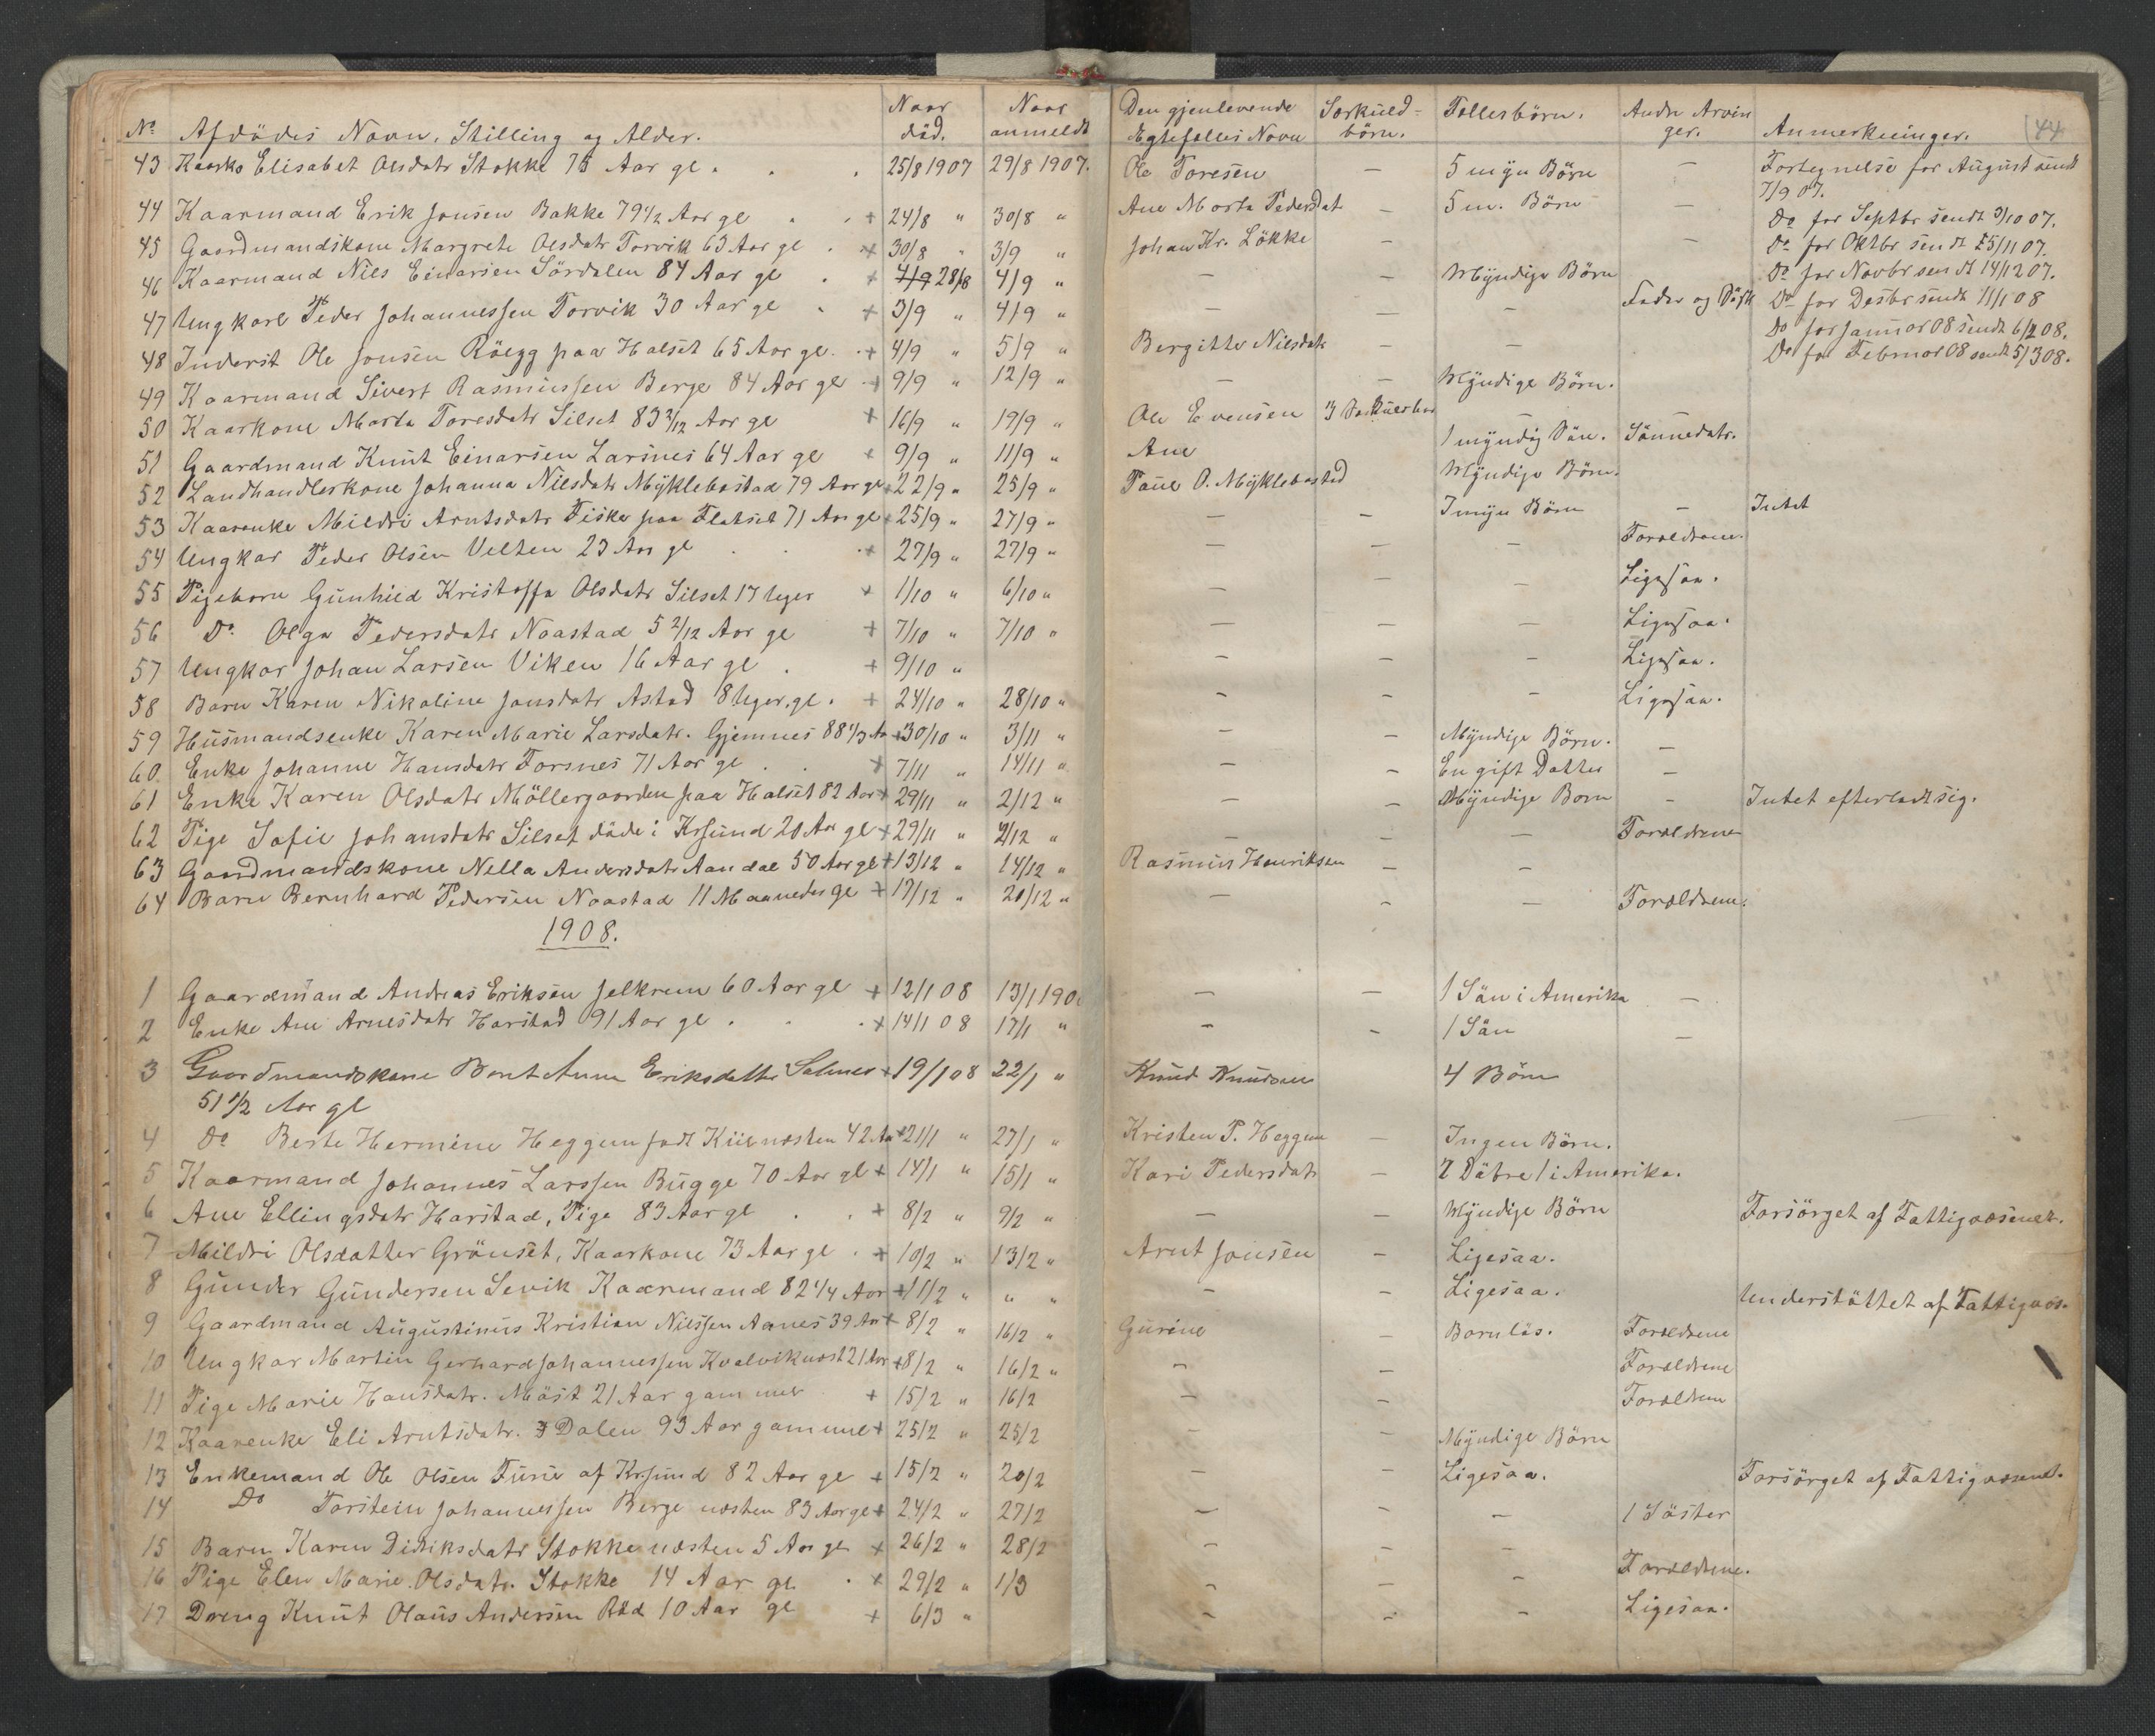 No Afdödes Navn, Stilling og Alder. Naar död. Naar anmeldt Den gjenlevende Egtefælles Navn Særkuldbörn. Fællesbörn. Andre Arvinger. Anmerkninger. 44
43 Kaarko Elisabet Olsdatr Stokke 75 Aar gl. 25/8 1907 29/8 1907. Ole Toresen — 5 myn Börn — Fortegnelse for August sendt 7/9 07.
44 Kaarmand Erik Jonsen Bakke 79 1/2 Aar gl + 24/8 " 30/8 " Ane Marta Pedersdat — 5 m. Börn — Do for Septbr sendt 3/10 07.
45 Gaardmandskone Margrete Olsdatr Torvik 63 Aar gl. + 30/8 " 3/9 " Johan Kr. Lökke — — Do for Oktbr sendt 5/11 07.
46 Kaarmand Nils Einarsen Sördalen 84 Aar gl. + 28/8 4/9 " — — Myndige Börn Do for Novbr sendt 14/12 07.
47 Ungkarl Peder Johannessen Torvik 30 Aar gl. + 3/9 " 4/9 " — — — Fader og Sösk Do for Desbr sendt 11/1 08
Do for Januar 08 sendt 6/2 08.
48 Inderst Ole Jonsen Röegg paa Halset 65 Aar gl. + 4/9 " 5/9 " Bergitte Nilsdatr — — Do for Februar 08 sendt 5/3 08.
49 Kaarmand Sivert Rasmussen Berge 84 Aar gl + 9/9 " 12/9 " — — Myndige Börn.
50 Kaarkone Marta Toresdatr Silset 83 3/12 Aar gl + 16/9 " 19/9 " Ole Evensen 3
51 Gaardmand Knut Einarsen Larsnes 64 Aar gl + 9/9 " 11/9 " Ane 1 myndig Sön. Sönnedatr.
52 Landhandlerkone Johanna Nilsdatr Myklebostad 79 Aar gl + 22/9 " 25/9 " O. Myklebostad Myndige Börn.
53 Kaarenke Mildri Arntsdatr Fiske paa Flatset 71 Aar gl + 25/9 " 27/9 " — — 7 myn Börn — Intet
54 Ungkar Peder Olsen Velten 23 Aar gl + 27/9 " 27/9 " — — — Forældrene.
55 Pigebarn Gunhild Kristoffa Olsdatr Silset 17 Uger + 1/10 " 6/10 " — — — Ligesaa.
56 Do Olga Pedersdatr Naastad 5 2/12 Aar gl + 7/10 " 7/10 " — — — Ligesaa.
57 Ungkar Johan Larsen Viken 16 Aar gl. + 9/10 " — — — Ligesaa.
58 Barn Karen Nikoline Jonsdatr Astad 8 Uger. gl. + 24/10 " 28/10 " — — — Ligesaa.
59 Husmandsenke Karen Marie Larsdatr. Gjemnes 88 1/3 Aa + 30/10 " 3/11 " — — Myndige Börn. —
60. Enke Johanne Hansdatr Torsnes 71 Aar gl + 7/11 " 14/11 " — — En gift Datter —
61 Enke Karen Olsdatr Möllergaarden paa Halset 82 Aar + 29/11 " 2/12 " — — Myndige Born — Intet efterladt sig.
62 Pige Sofie Johansdatr Silset döde i Krsund 20 Aar gl + 29/11 " 2/12 " — — — Forældrene
63 Gaardmandskone Nella Andersdatr Aandal 50 Aar gl + 13/12 " 14/12 " Rasmus Henriksen — —
64 Barn Bernhard Pedersen Naastad 11 Maaneder gl + 17/12 " 20/12 " — — — Forældrene.
1908.
1 Gaardmand Andreas Eriksen Jelkrem 60 Aar gl + 12/1 08 13/1 190 — — 1 Sön i Amerika —
2 Enke Ane Arnesdatr Harstad 91 Aar gl. + 14/1 08 17/1 " — — 1 Sön —
3 Gaardmandskone Berit Anna Eriksdatter Solnes + 19/1 08 22/1 " Knud Knudsen 4 Börn
51 1/2 Aar gl
4 Do Berte Hermine Heggem födt næsten 42 Aar + 21/1 " 27/1 " Kristen P. Heggem — Ingen Börn.
5 Kaarmand Johannes Larssen Bugge 70 Aar gl + 14/1 " 15/1 " Kari Pedersdatr — 2 Dötre 1 i Amerika.
6 Ane Ellingsdatr Harstad, Pige 83 Aar gl + 8/2 " 9/2 " — — Myndige Börn Forsörget af Fattigvæsenet.
7 Mildri Olsdatter Grönset, Kaarkone 73 Aar gl. + 10/2 " 13/2 " Arnt Jonsen — Ligesaa.
8 Gunder Gundersen Sevik Kaarmand 82 1/4 Aar + 11/2 " " " — — Ligesaa. Understöttet af Fattigvæs.
9 Gaardmand Augustinus Kristian Nilssen Aanes 39 Aar + 8/2 " 16/2 " Gurine — Barnlös. Forældrene
10 Ungkar Martin Gerhard Johannessen Kvalvik næst 21 Aar + 8/2 " 16/2 " — — Forældrene
11 Pige Marie Hansdatr. Möst 21 Aar gammel + 15/2 " 16/2 — — Forældrene
12 Kaarenke Eli Arntsdatr. Dalen 93 Aar gammel + 25/2 " 25/2 — — Myndige Börn
13 Enkemand Ole Olsen Furu af Krsund 82 Aar gl + 15/2 " 20/2 — — Ligesaa. Forsörget af Fattigvæsenet.
14 Do Torstein Johannessen Berge næsten 83 Aar gl + 24/2 " 27/2 — — — 1 Söster
15 Barn Karen Didriksdatr Stokke næsten 5 Aar gl + 26/2 " 28/2 — — —
16 Pige Elen Marie Olsdatr. Stokke 14 Aar gl. + 29/2 " 1/3 — — — Forældrene.
17 Dreng Knut Olaus Andersen Röd 10 Aar gl + 6/3 " — — — Ligesaa.